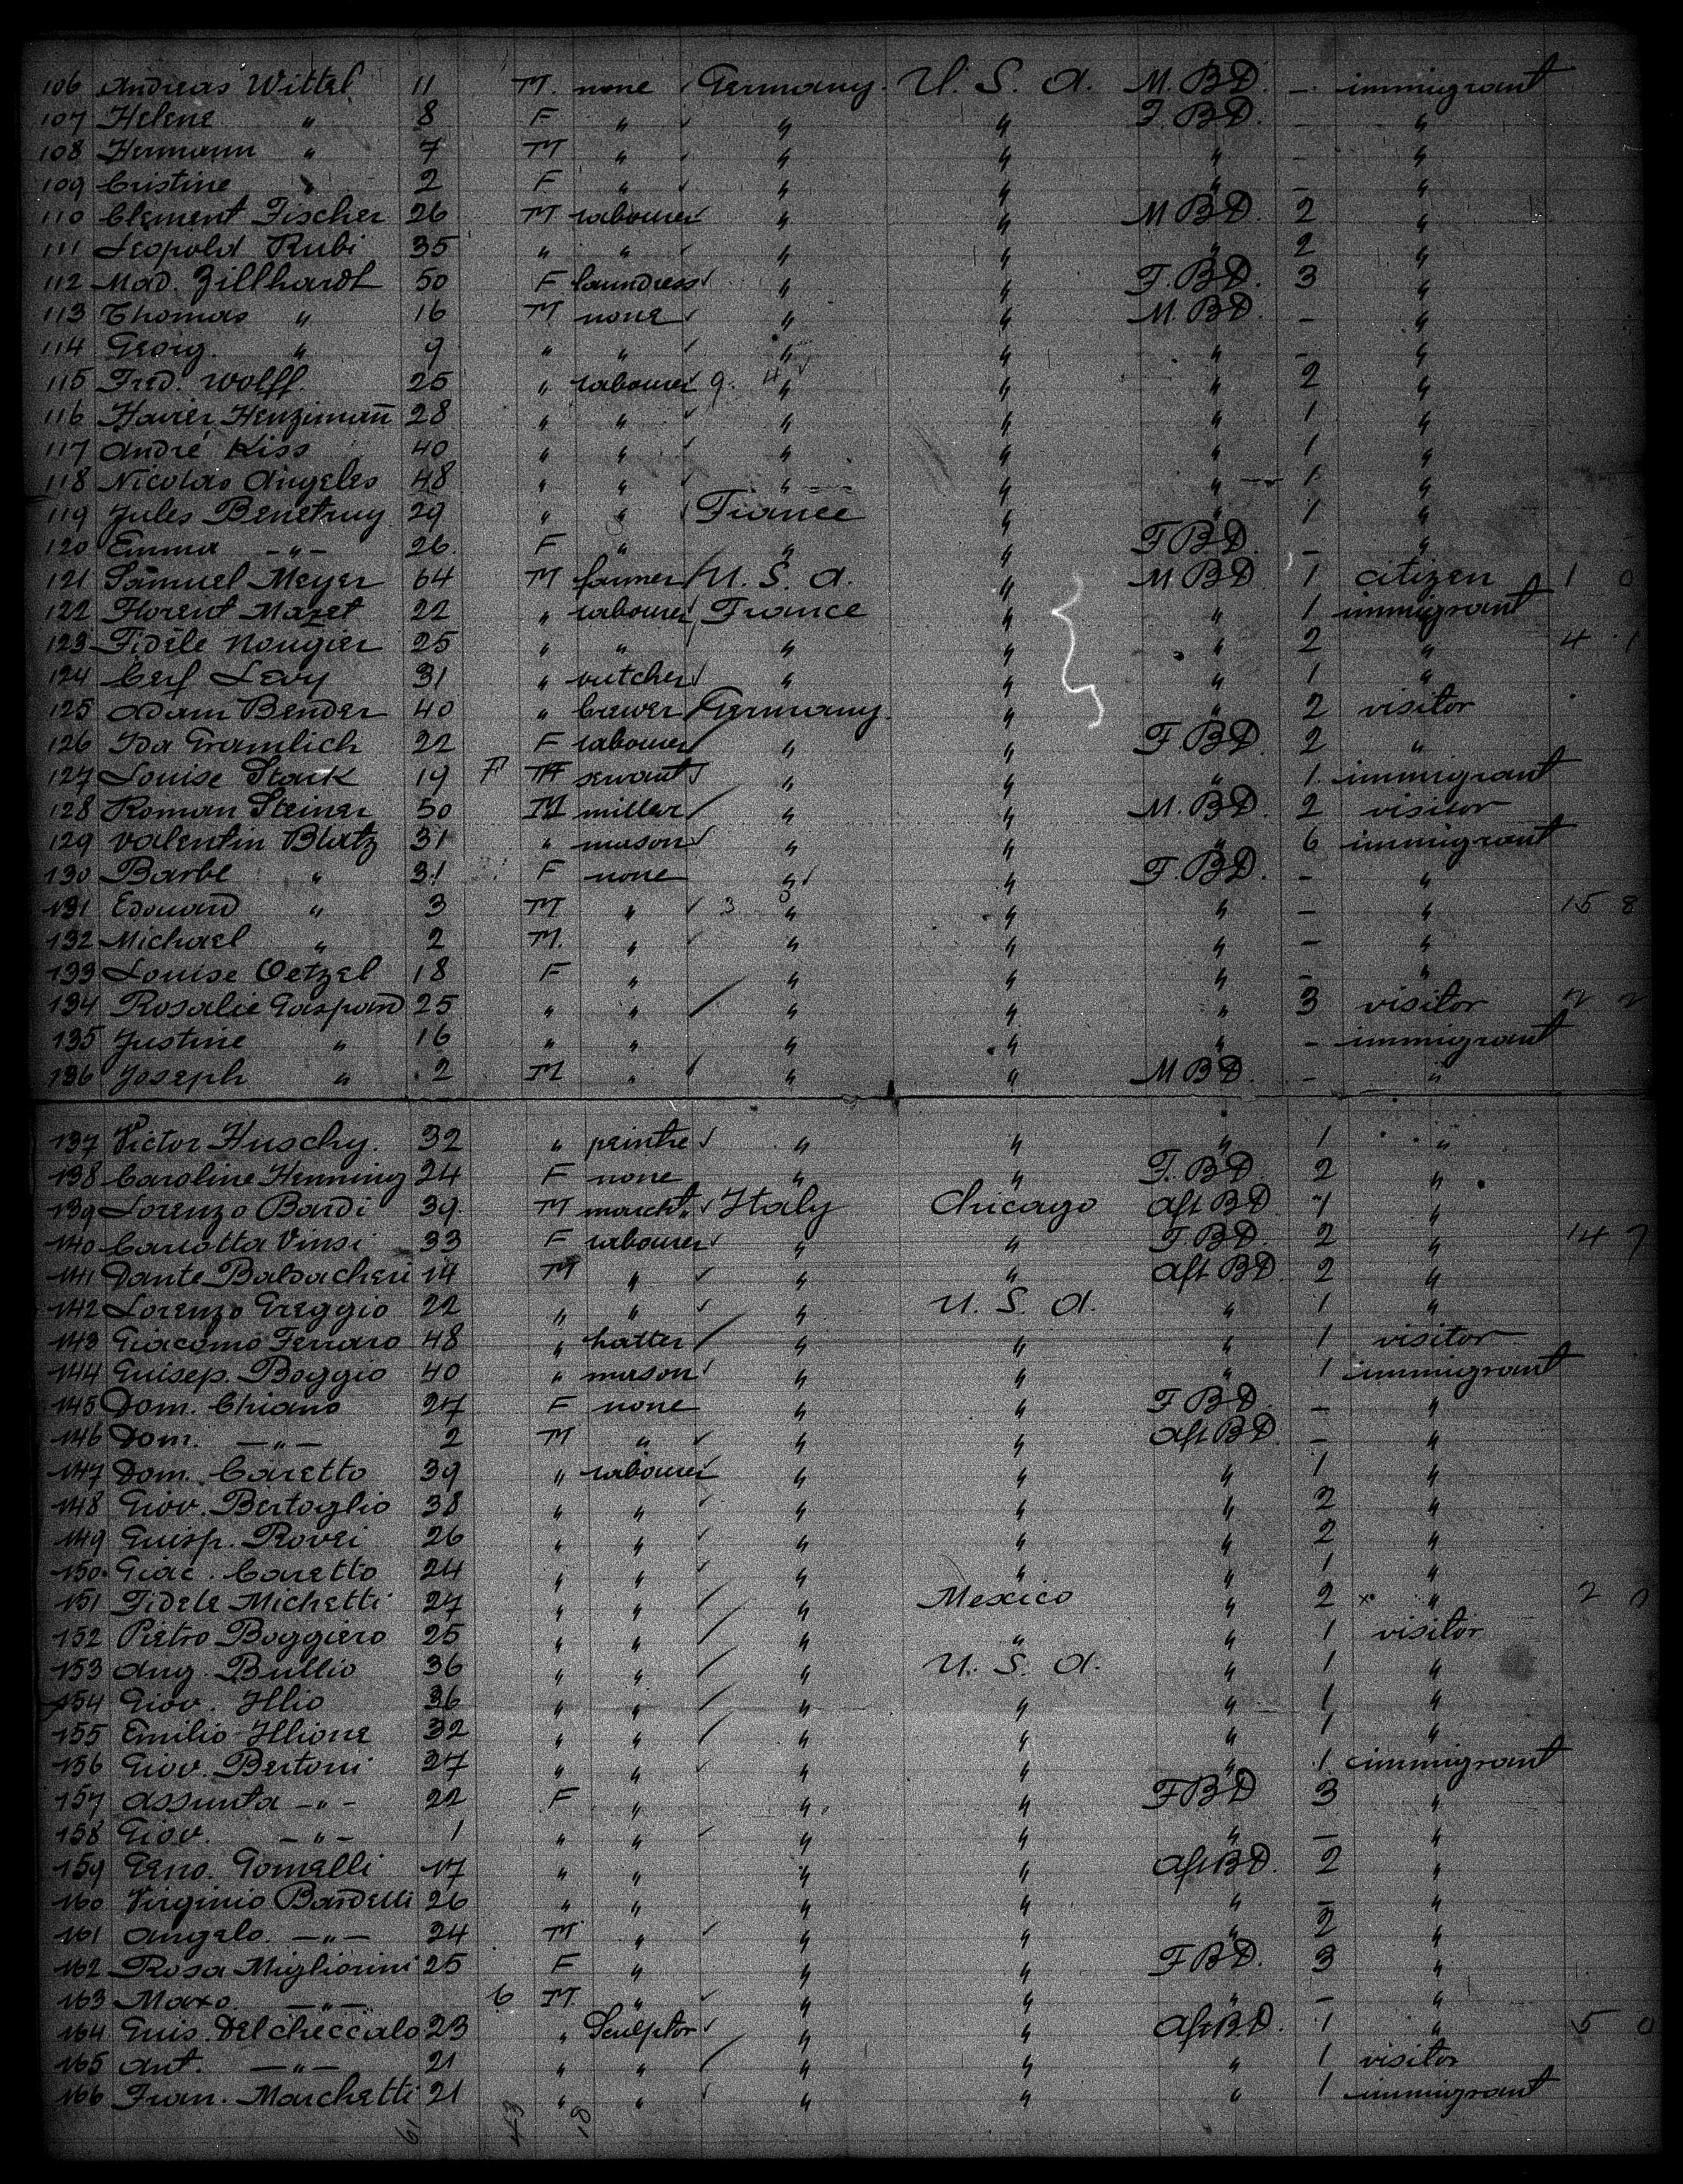 106 Andreas Wittel 11 M. none Germany. U. S. A. M. BD. - immigrant
107 Helene " 8 F " " " F. BD. - "
108 Hermann " 7 M " " " " - "
109 Cristine " 2 F " " " " - "
110 Clement Fischer 26 M labourer " " M BD. 2 "
111 Leopold Rubi 35 " " " " " 2 "
112 Mad. Zillhardt 50 F laundress " " F. BD. 3 "
113 Thomas " 16 M none " " M. BD. - "
114 Georg. " 9 " " " " " - "
115 Fred. Wolff. 25 " labourer " " " 2 "
116 Xavier Henzimañ 28 " " " " " 1 "
117 André Kiss 40 " " " " " 1 "
118 Nicolas Angeles 48 " " " " " 1 "
119 Jules Benetruy 29 " " France " " 1 "
120 Emma -"- 26. F " " " F BD. - "
121 Samuel Meyer 64 M farmer U. S. A. " M. BD 1 citizen 1 0
122 Florent Mazet 22 " labourer France " " 1 immigrant
123 Fidèle Nougier 25 " " " " " 2 " 4 1
124 Cerf Levy 31 " butcher " " " 1 "
125 Adam Bender 40 " brewer Germany. " " 2 visitor
126 Ida Gramlich 22 F labourer " " F. BD 2 "
127 Louise Stark 19 F servant " " " 1 immigrant
128 Roman Steiner 50 M miller " " M. BD 2 visitor
129 Valentin Blatz 31 " mason " " " 6 immigrant
130 Barbe " 31 F none " " F. BD. - "
131 Edouard " 3 M " " " " - " 15 8
132 Michael " 2 M. " " " " - "
133 Louise Oetzel 18 F " " " " - "
134 Rosalie Gaspard 25 " " " " " 3 visitor 2 2
135 Justine " 16 " " " " " - immigrant
136 Joseph " 2 M " " " M BD. - "
137 Victor Huschy. 32 " peintre " " " 1 "
138 Caroline Henning 24 F none " " F. BD 2 "
139 Lorenzo Bardi 39 M march. Italy Chicago Aft BD 1 "
140 Carlotta Vinsi 33 F labourer " " F. BD. 2 " 14 7
141 Dante Balsacheri 14 M " " " Aft BD 2 "
142 Lorenzo Greggio 22 " " " U. S. A. " 1 "
143 Giacomo Ferraro 48 " hatter " " " 1 visitor
144 Guisep. Boggio 40 " mason " " " 1 immigrant
145 Dom. Chiano 27 F none " " F BD. - "
146 Dom. -"- 2 M " " " Aft BD - "
147 Dom. Caretto 39 " labourer " " " 1 "
148 Giov. Bertoglio 38 " " " " " 2 "
149 Guisp. Rovei 26 " " " " " 2 "
150 Giac. Caretto 24 " " " " " 1 "
151 Fidele Michetti 27 " " " Mexico " 2 x " 2 0
152 Pietro Boggiero 25 " " " " " 1 visitor
153 Aug. Bullio 36 " " " U. S. A. " 1 "
154 Giov. Illio 36 " " " " " 1 "
155 Emilio Illione 32 " " " " " 1 "
156 Giov. Bertoni 27 " " " " " 1 immigrant
157 Assunta -"- 22 F " " " F BD 3 "
158 Giov. -"- 1 " " " " " - "
159 Geno. Gomelli 17 " " " " Aft BD. 2 "
160 Virginio Bardelli 26 " " " " " - "
161 Angelo. -"- 24 M " " " " 2 "
162 Rosa Migliorini 25 F " " " F BD. 3 "
163 Maro. -"- 6 M. " " " " - "
164 Guis. Delcheccalo 23 " Sculptor " " Aft BD. 1 " 5 0
165 Ant. -"- 21 " " " " " 1 visitor
166 Fran. Marchetti 21 " " " " " 1 immigrant
61 43 18